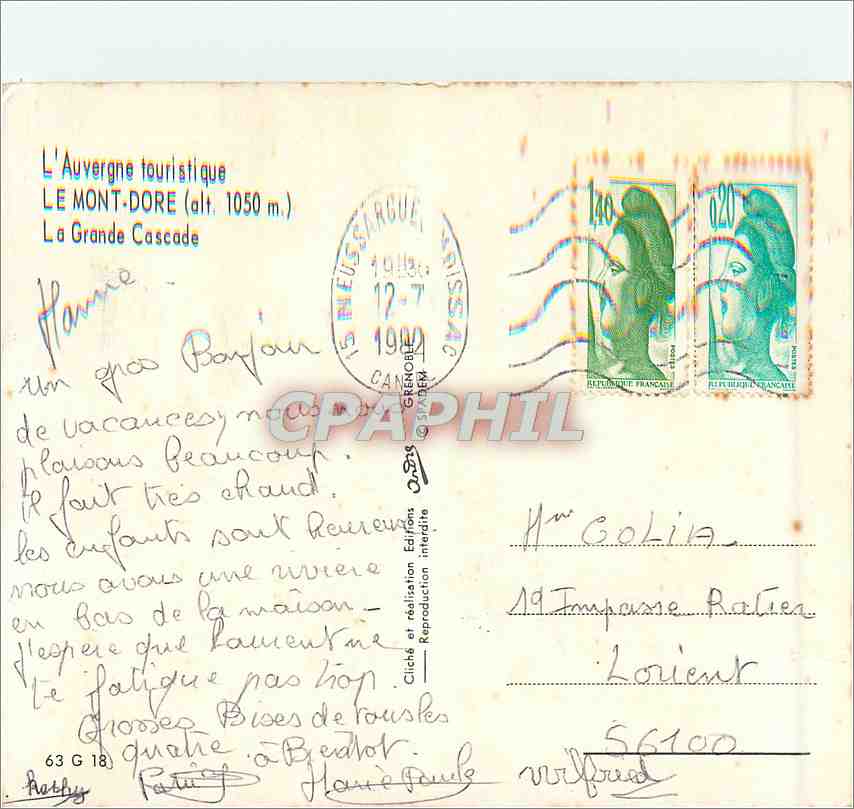 L'Auvergne touristique
LE MONT-DORE (alt. 1050 m.)
La Grande Cascade
15 NEUSSARGUES MOISSAC
12-7
CANTAL
1,40
0,20
POSTES
POSTES
REPUBLIQUE FRANÇAISE
REPUBLIQUE FRANÇAISE
un gros Bonjour
de vacances, nous nous
plaisons beaucoup.
il fait très chaud.
les enfants sont heureux.
nous avons une rivière
en bas de la maison -
j'espère que ne
te fatigue pas trop.
Grosses Bises de tous les
quatre. à Bientot.
Marie Paule
Wilfried
63 G 18
Cliché et réalisation Editions André GRENOBLE
Reproduction interdite © SPADEM
CPAPHIL
Mme GOLIA.
19 Impasse Ratier
Lorient
56100